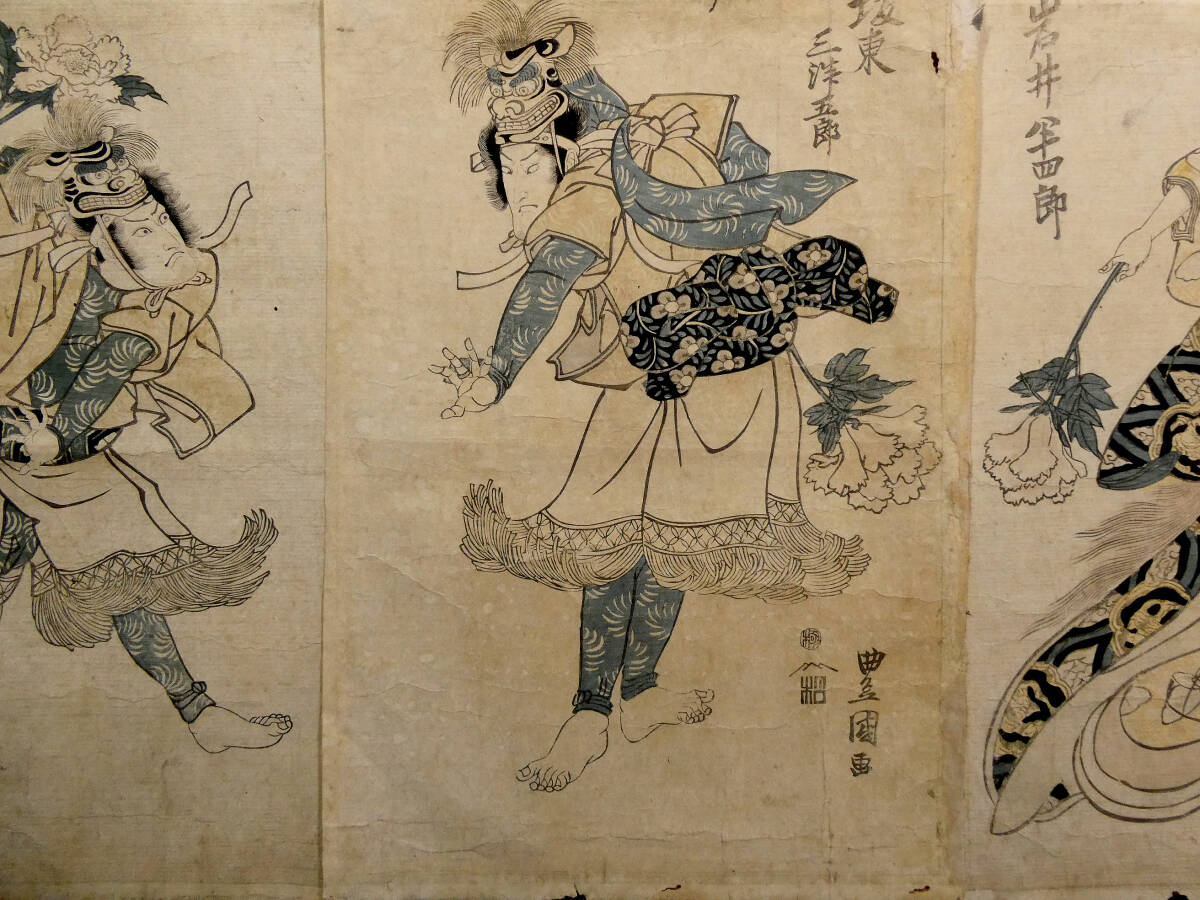 岩井半四郎
坂東
三津五郎
極
松
豊國画